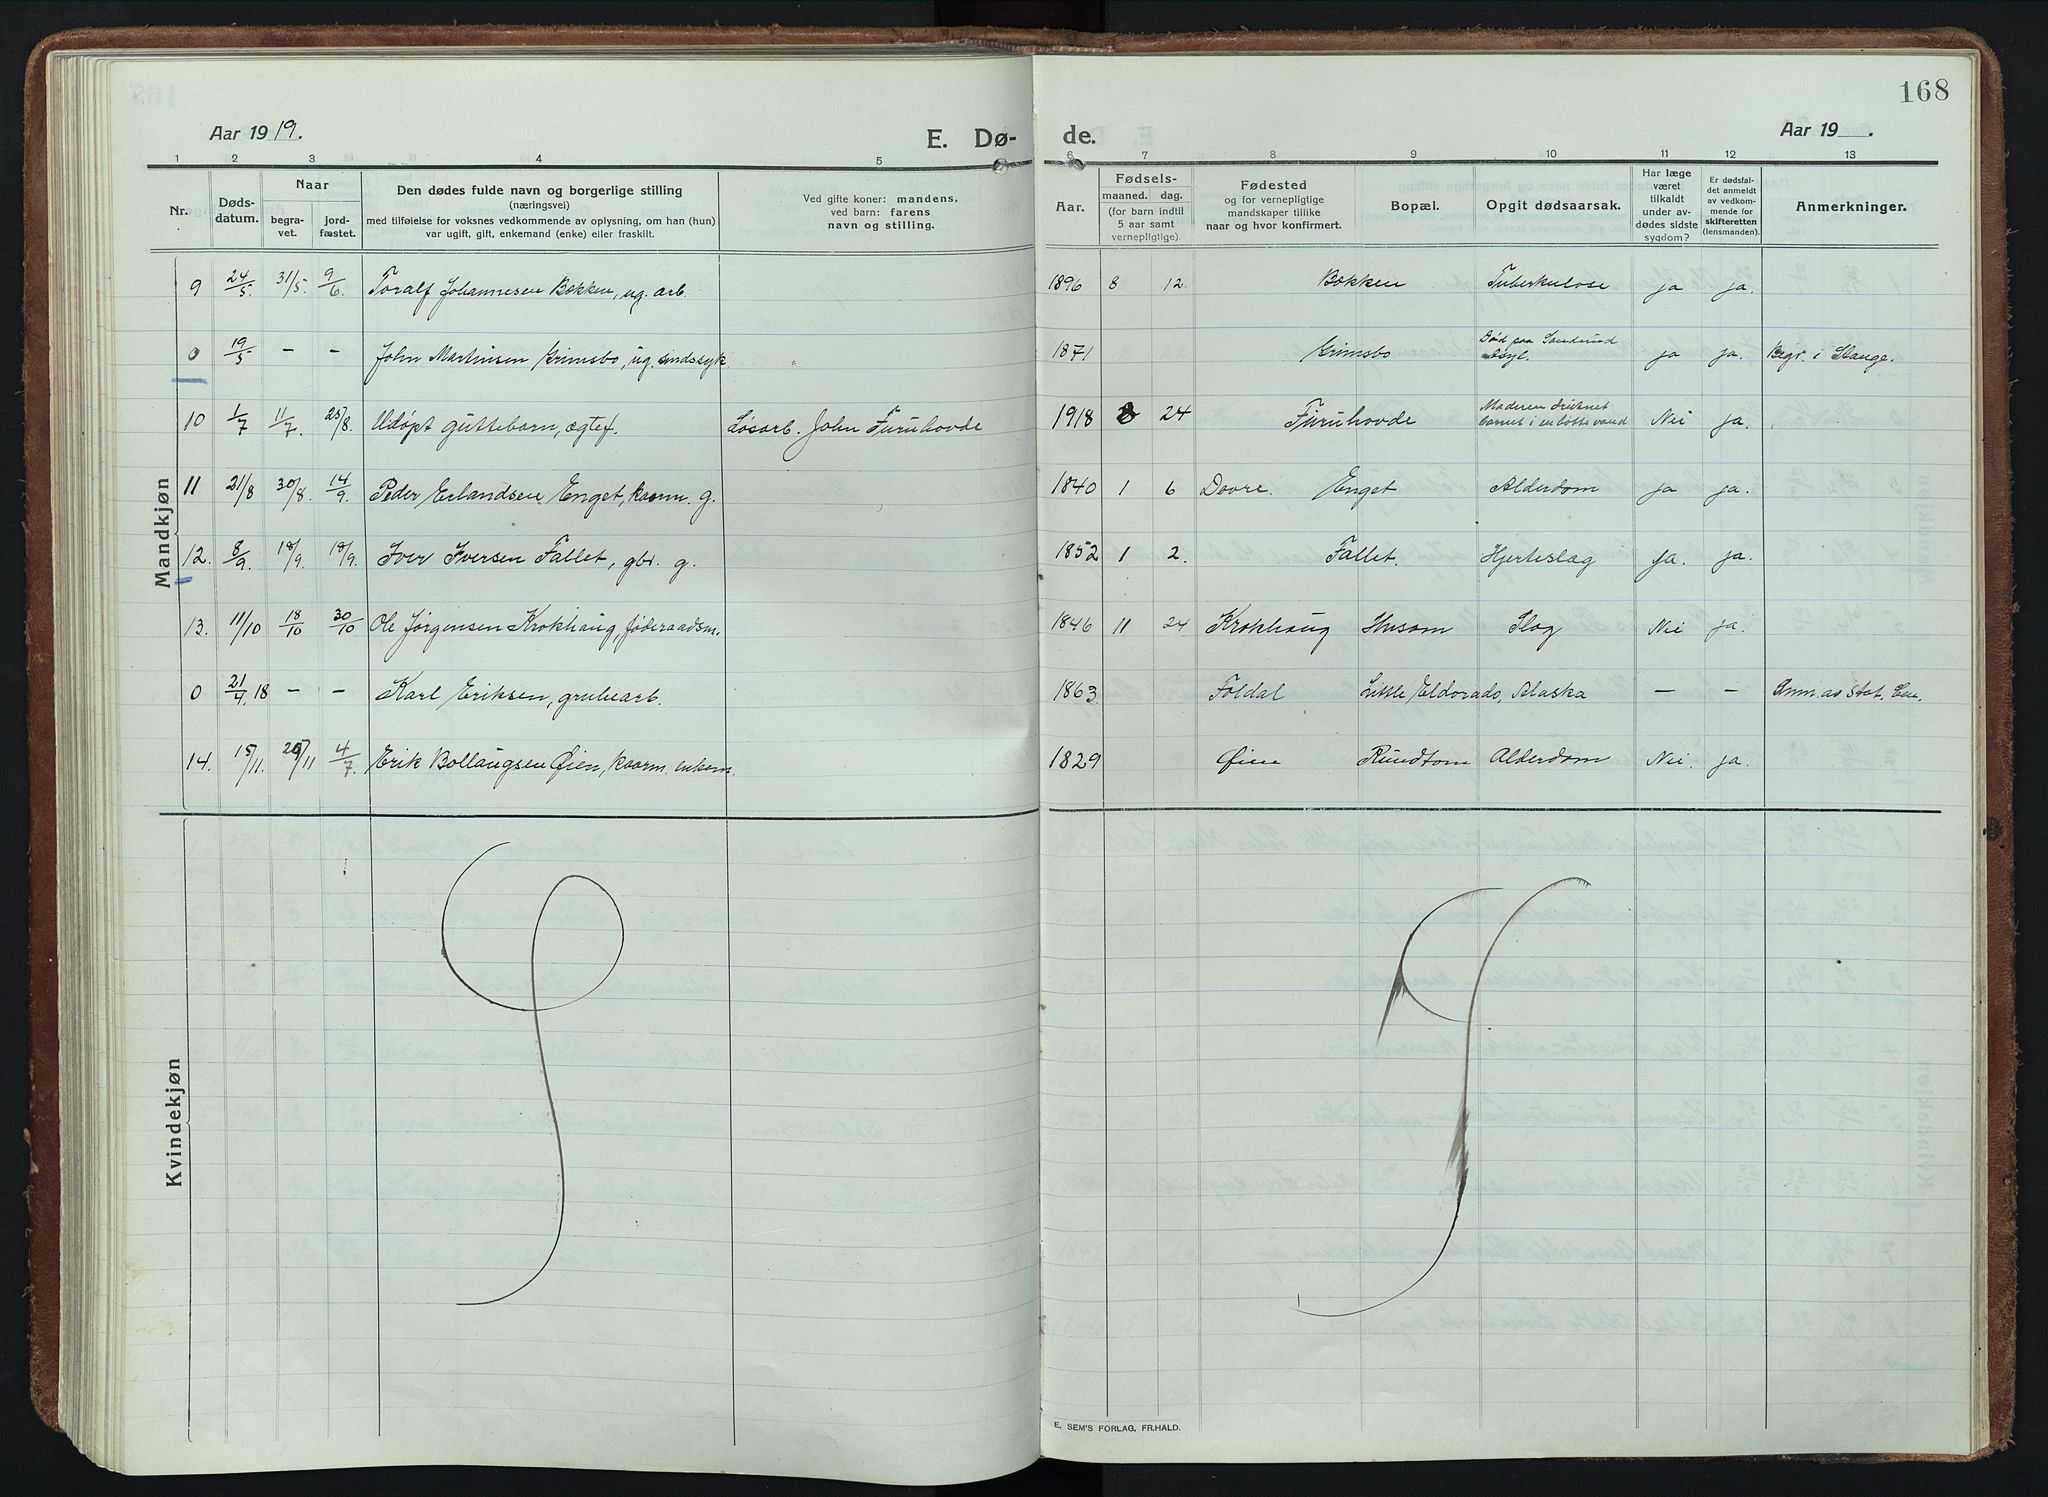 168
Aar 1919.
E. Dø-
de.
Aar 19 .
1 2 3 4 5 6 7 8 9 10 11 12 13
Nr.
Døds-
datum.
Naar
begra-
vet.
jord-
fæstet.
Den dødes fulde navn og borgerlige stilling
(næringsvei)
med tilføielse for voksnes vedkommende av oplysning, om han (hun)
var ugift, gift, enkemand (enke) eller fraskilt.
Ved gifte koner: mandens,
ved barn: farens
navn og stilling.
Aar.
Fødsels-
maaned. dag.
(for barn indtil
5 aar samt
vernepligtige).
Fødested
og for vernepligtige
mandskaper tillike
naar og hvor konfirmert.
Bopæl.
Opgit dødsaarsak.
Har læge
været
tilkaldt
under av-
dødes sidste
sygdom?
Er dødsfal-
det anmeldt
av vedkom-
mende for
skifteretten
(lensmanden).
Anmerkninger.
Mandkjøn
9 24/5. 31/5. 9/6. Toralf Johannesen Bækken, ug. arb. 1896 8 12. Bækken Tuberkulose ja ja.
0 19/5 - - John Martinsen Grimsbo, ug. sindssyk. 1871 Grimsbo Død paa Sanderud Asyl. ja ja. Begr. i Stange.
10 1/7 11/7. 25/8. Udøpt guttebarn, ægtef. Løsarb. John Furuhovde 1918 8 24 Furuhovde Moderen druknet barnet i en bøtte vand Nei ja.
11 21/8 30/8. 14/9. Peder Erlandsen Enget, kaarm. g. 1840 1 6 Dovre. Enget Alderdom ja ja.
12. 8/9. 18/9. 18/9. Iver Iversen Fallet, gbr. g. 1852 1 2. Fallet. Hjerteslag ja. ja.
13. 11/10 18/10 30/10 Ole Jørgensen Krokhaug, føderaadsm. 1846 11 24 Krokhaug Husom Slag Nei ja.
0 21/4. 18 - - Karl Eriksen, grubearb. 1863. Foldal Little Eldorado, Alaska - - Anm. av Stat.
14. 15/11. 20/11 4/7. Erik Bollaugsen Øien, kaarm. enkem. 1829 Øien Rundtom Alderdom Nei. ja.
Kvindekjøn
E. SEM'S FORLAG, FR.HALD.